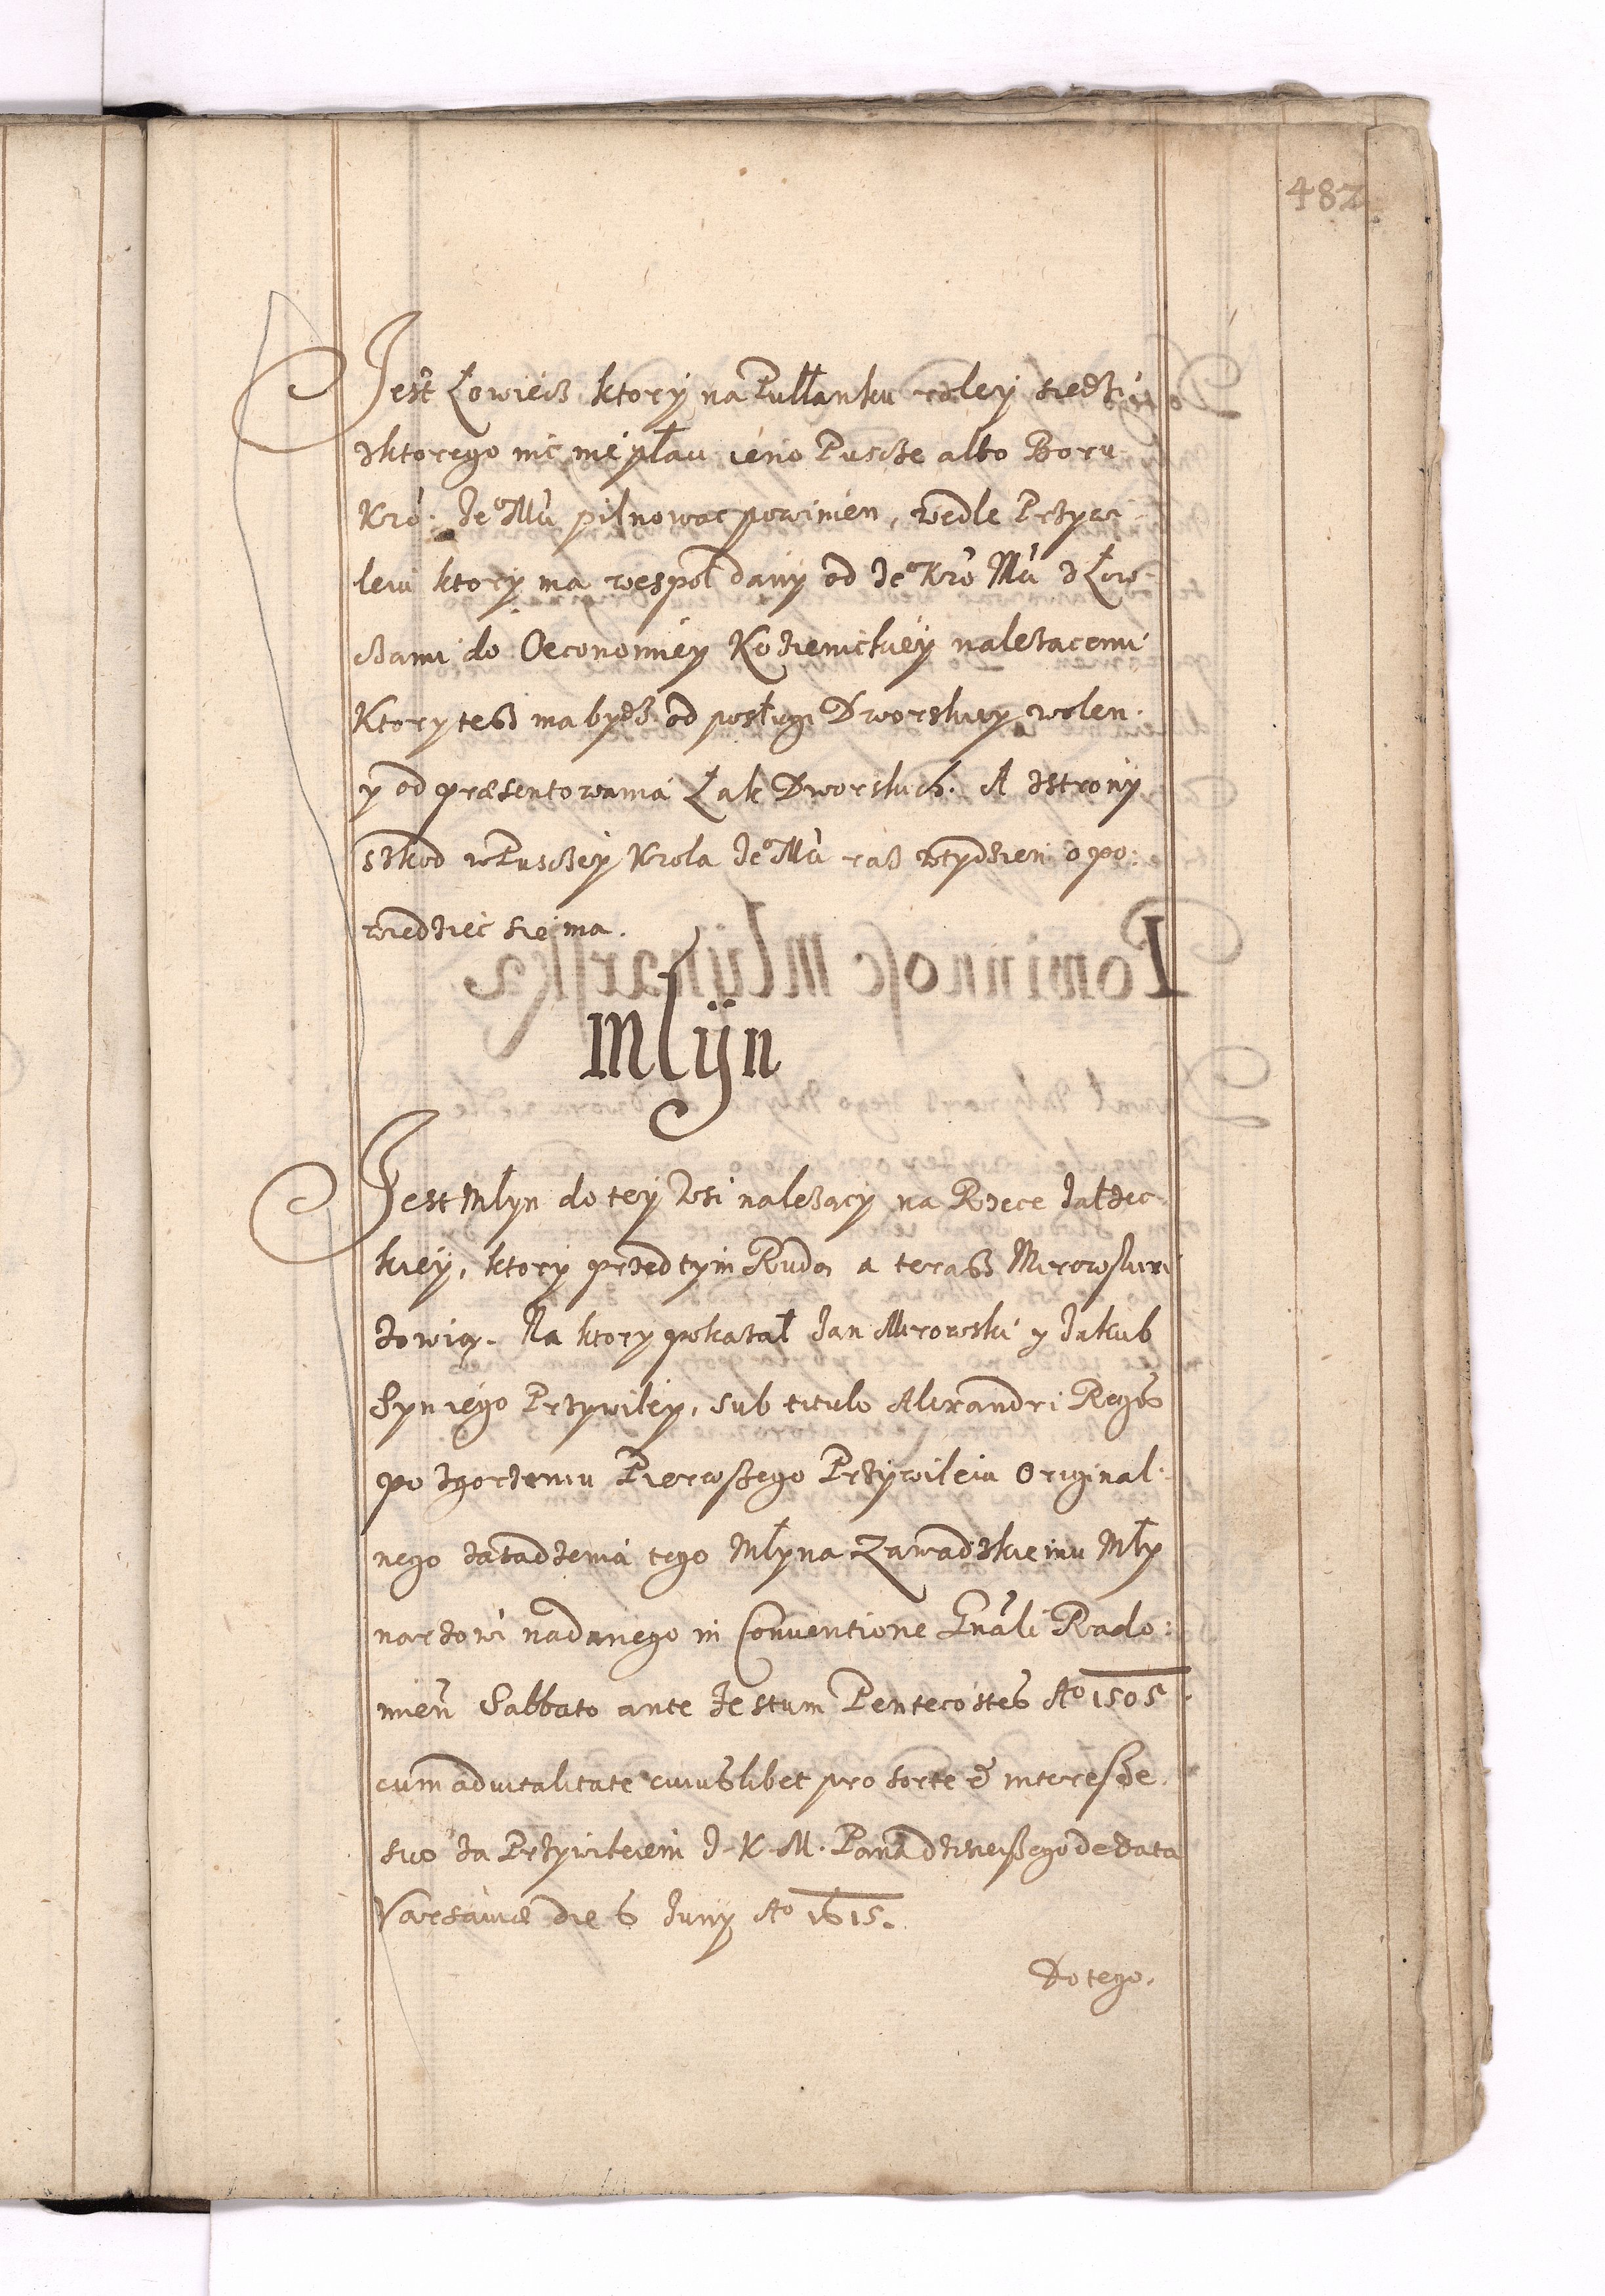 482.
Jest Łowiecz ktory na Pułłanku roley siedzi
zktorego nic nie płaci ieno Puscze albo Boru
Kro: Je⁰ Mci pilnowac powinien, wedle Przywi-
leiu ktory ma wespoł dany od Je⁰ Kro Mci z Łow-
czami do Oeconomiey Kozienickiey nalezacemi
Ktory tesz ma bydz od posługi Dworskiey wolen.
y od præsentowania Łąk Dworskich. A zstrony
szkod w Pusczey Krola Je⁰ Mci raz wtydzien opo:
wiedziec sie ma.
Mlyn
Jest Młyn do tey Wsi nalezący na Rzece
kiey, ktory przed tym Rudą a terasz Mirowskim
zowią. Na ktory pokazał Jan Mirowski y Jakub
Syn iego Przywiley, sub titulo Alexandri Regis
po zgorzeniu Pierwszego Przywileiu Original:
nego zasadzenia tego Młyna Zawadzkiemu Mły
narzowi nadanego in Conventione Gnali Rado:
mien Sabbato ante Festum Pentecostes A⁰ 1505.
cum aduitalitate cuiuslibet pro sorte et interesse
suo za Przywileiem J. K. M. Pana dzisieiszego de data
Varsauiæ die 6 Juny A⁰ 1615.
Do tego.